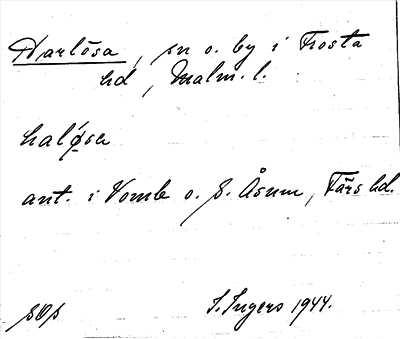 Harlösa, sn o. by i Frosta
hd, Malm. l.
halǿ̱sa
ant. i Vomb o. Ö. Åsum, Färs hd.
I. Ingers 1944.